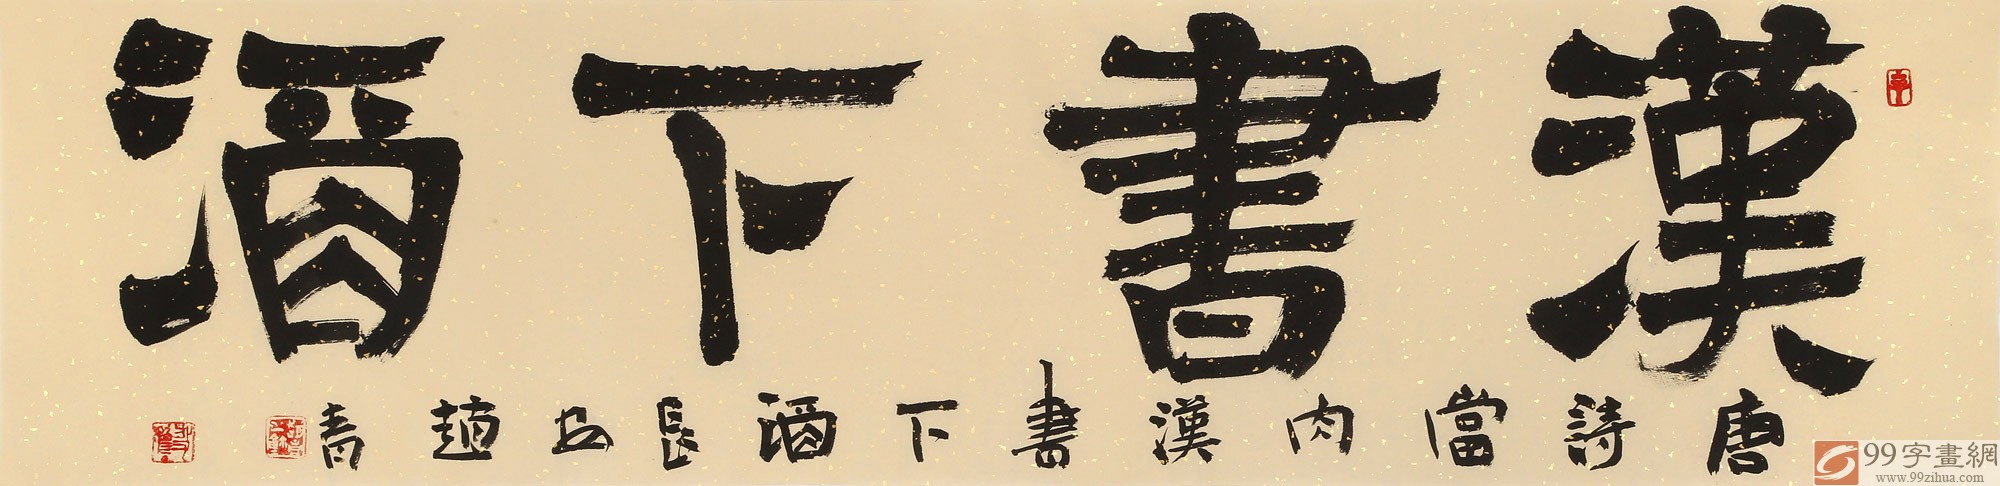 漢書下酒
唐詩當肉漢書下酒長安趙青
99字畫網
www.99zihua.com